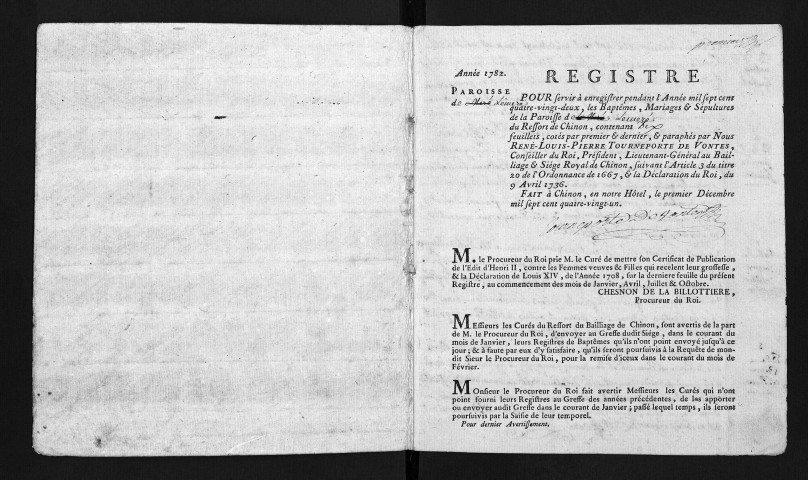 premier
Année 1782.
REGISTRE
PAROISSE
de Lemeré
POUR servir à enregistrer pendant l'Année mil sept cent
quatre-vingt-deux, les Baptêmes, Mariages & Sépultures
de la Paroisse de Lemeré
du Ressort de Chinon, contenant dix
feuillets, cotés par premier & dernier, & paraphés par Nous
RENÉ-LOUIS-PIERRE TOURNEPORTE DE VONTES,
Conseiller du Roi, Président, Lieutenant-Général au Bail-
liage & Siége Royal de Chinon, suivant l'Article 3 du titre
20 de l'Ordonnance de 1667, & la Déclaration du Roi, du
9 Avril 1736.
FAIT à Chinon, en notre Hôtel, le premier Décembre
mil sept cent quatre-vingt-un.
M. le Procureur du Roi prie M. le Curé de mettre son Certificat de Publication
de l'Edit d'Henri II, contre les Femmes veuves & Filles qui recelent leur grossesse,
& la Déclaration de Louis XIV, de l'Année 1708, sur la derniere feuille du présent
Registre, au commencement des mois de Janvier, Avril, Juillet & Octobre.
CHESNON DE LA BILLOTTIERE,
Procureur du Roi.
MEssieurs les Curés du Ressort du Bailliage de Chinon, sont avertis de la part
de M. le Procureur du Roi, d'envoyer au Greffe dudit Siége, dans le courant du
mois de Janvier, leurs Registres de Baptêmes qu'ils n'ont point envoyé jusqu'à ce
jour; & à faute par eux d'y satisfaire, qu'ils seront poursuivis à la Requête de mon-
dit Sieur le Procureur du Roi, pour la remise d'iceux dans le courant du mois de
Février.
MOnsieur le Procureur du Roi fait avertir Messieurs les Curés qui n'ont
point fourni leurs Registres au Greffe des années précédentes, de les apporter
ou envoyer audit Greffe dans le courant de Janvier; passé lequel temps, ils seront
poursuivis par la Saisie de leur temporel.
Pour dernier Avertissement.